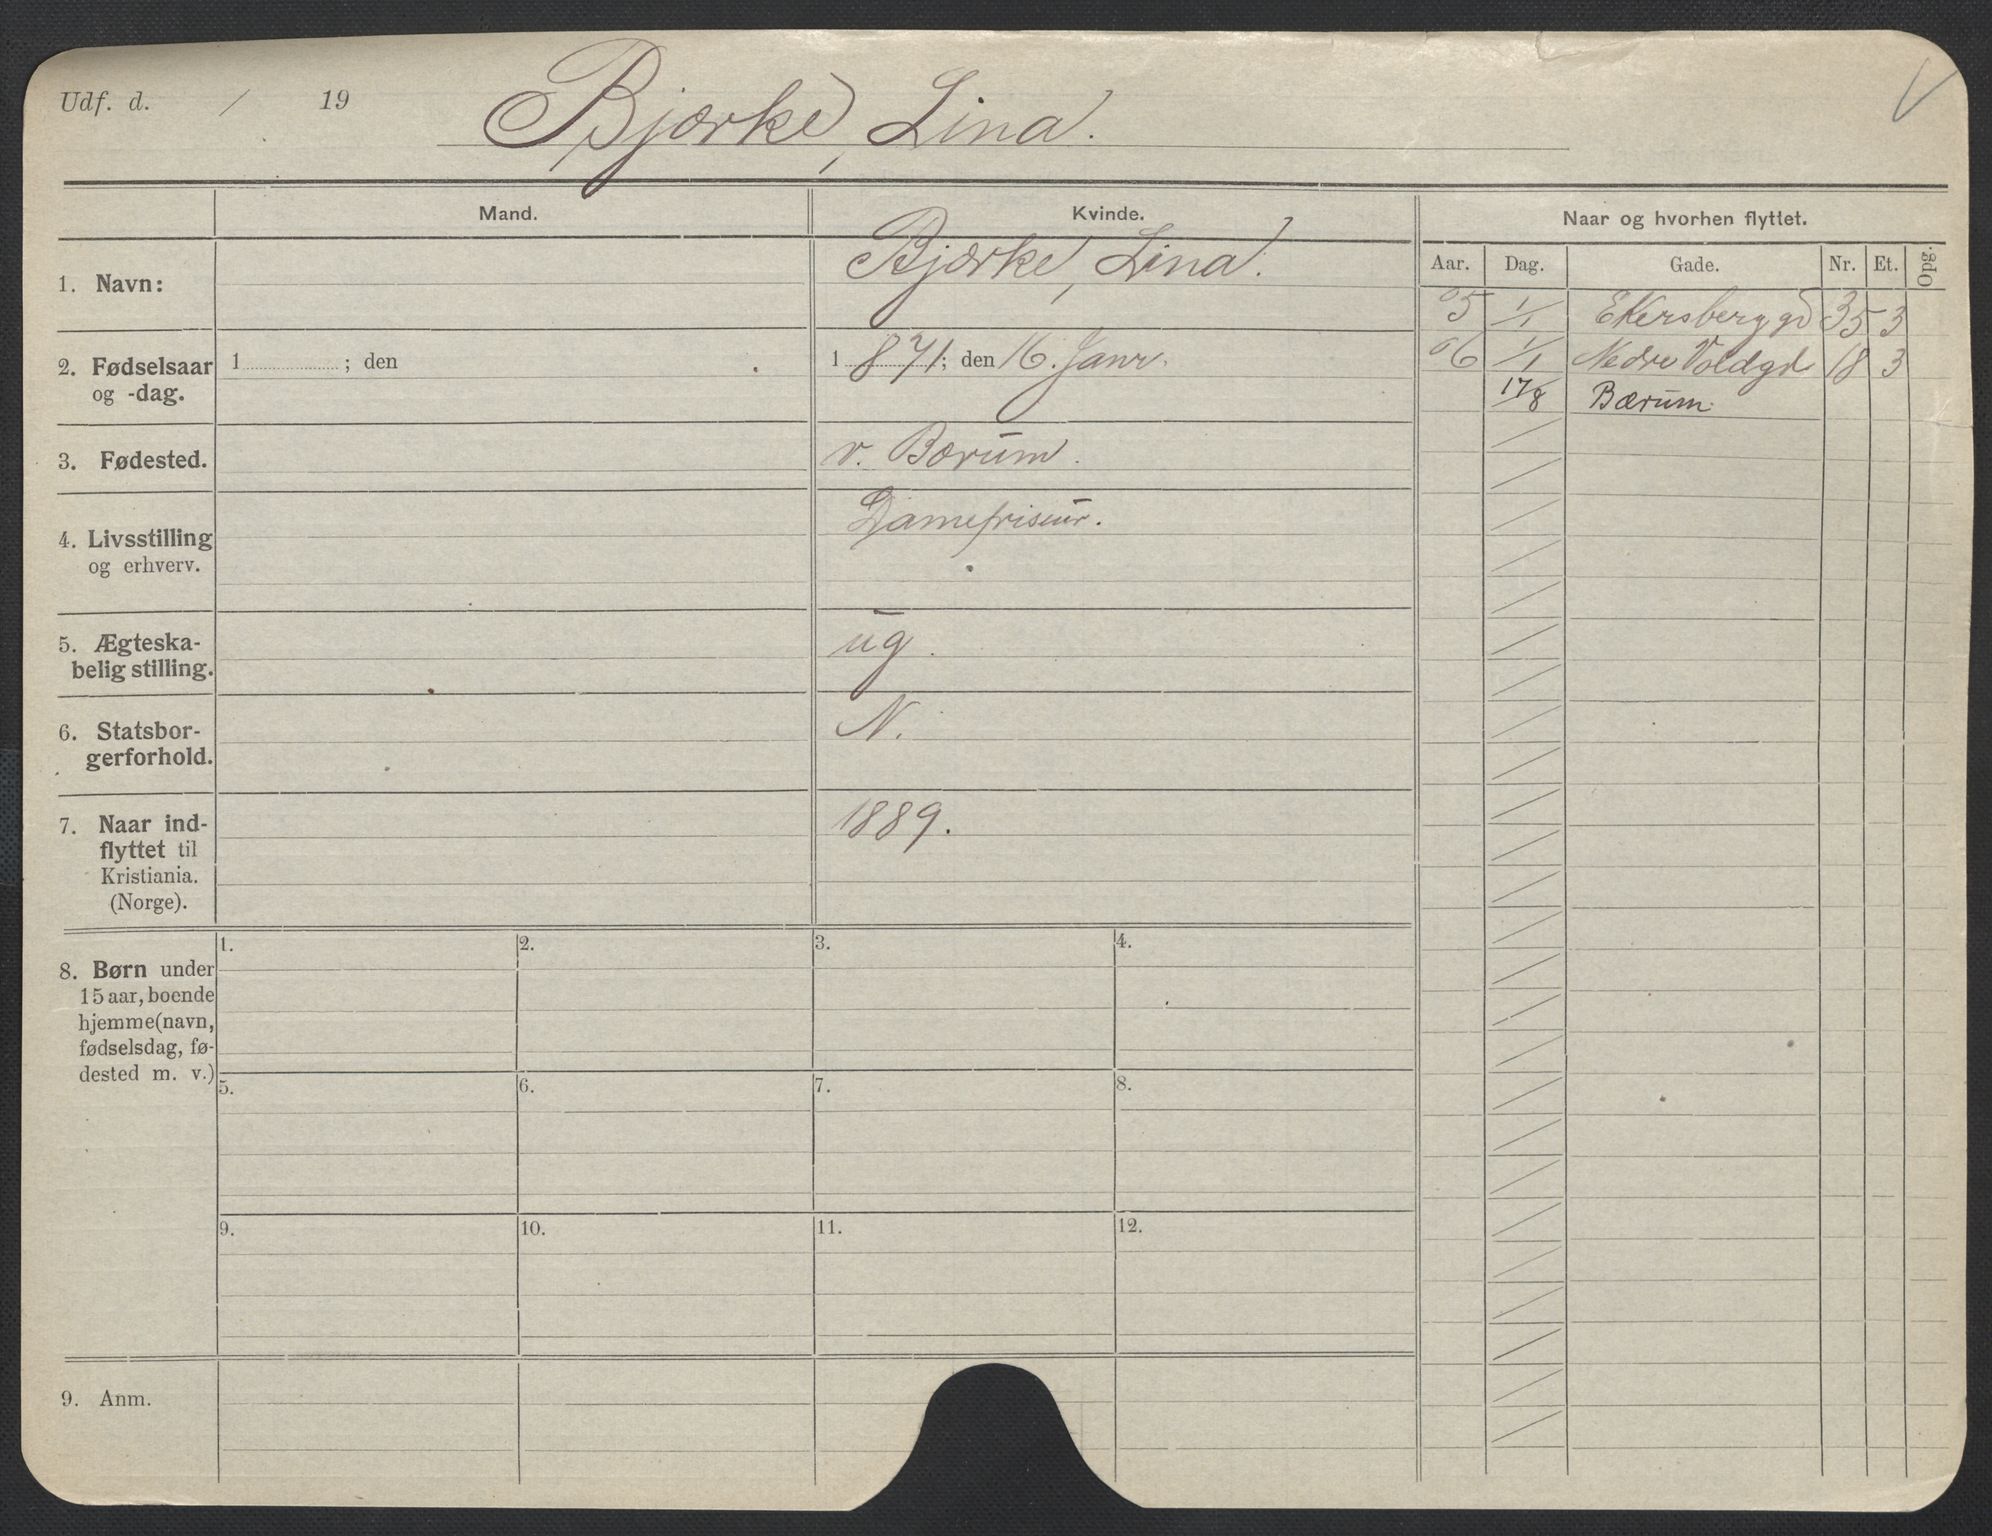 Udf. d. / 19 Bjørke, Lina.
Mand.
Kvinde.
Naar og hvorhen flyttet.
Aar. Dag. Gade. Nr. Et. Opg.
1. Navn:
Bjørke, Lina.
2. Fødselsaar
og -dag.
1 ; den
1 871; den 16. Janr.
3. Fødested.
v. Bærum.
4. Livsstilling
og erhverv.
Damefrisør.
5. Ægteska-
belig stilling.
ug.
6. Statsbor-
gerforhold.
N.
7. Naar ind-
flyttet til
Kristiania.
(Norge).
1889.
8. Børn under
15 aar, boende
hjemme (navn,
fødselsdag, fø-
dested m. v.)
1. 2. 3. 4.
5. 6. 7. 8.
9. 10. 11. 12.
9. Anm.
05 1/1 Ekersberg gd 35 3
06 1/1 Nedre Voldgd 18 3
17/8 Bærum.